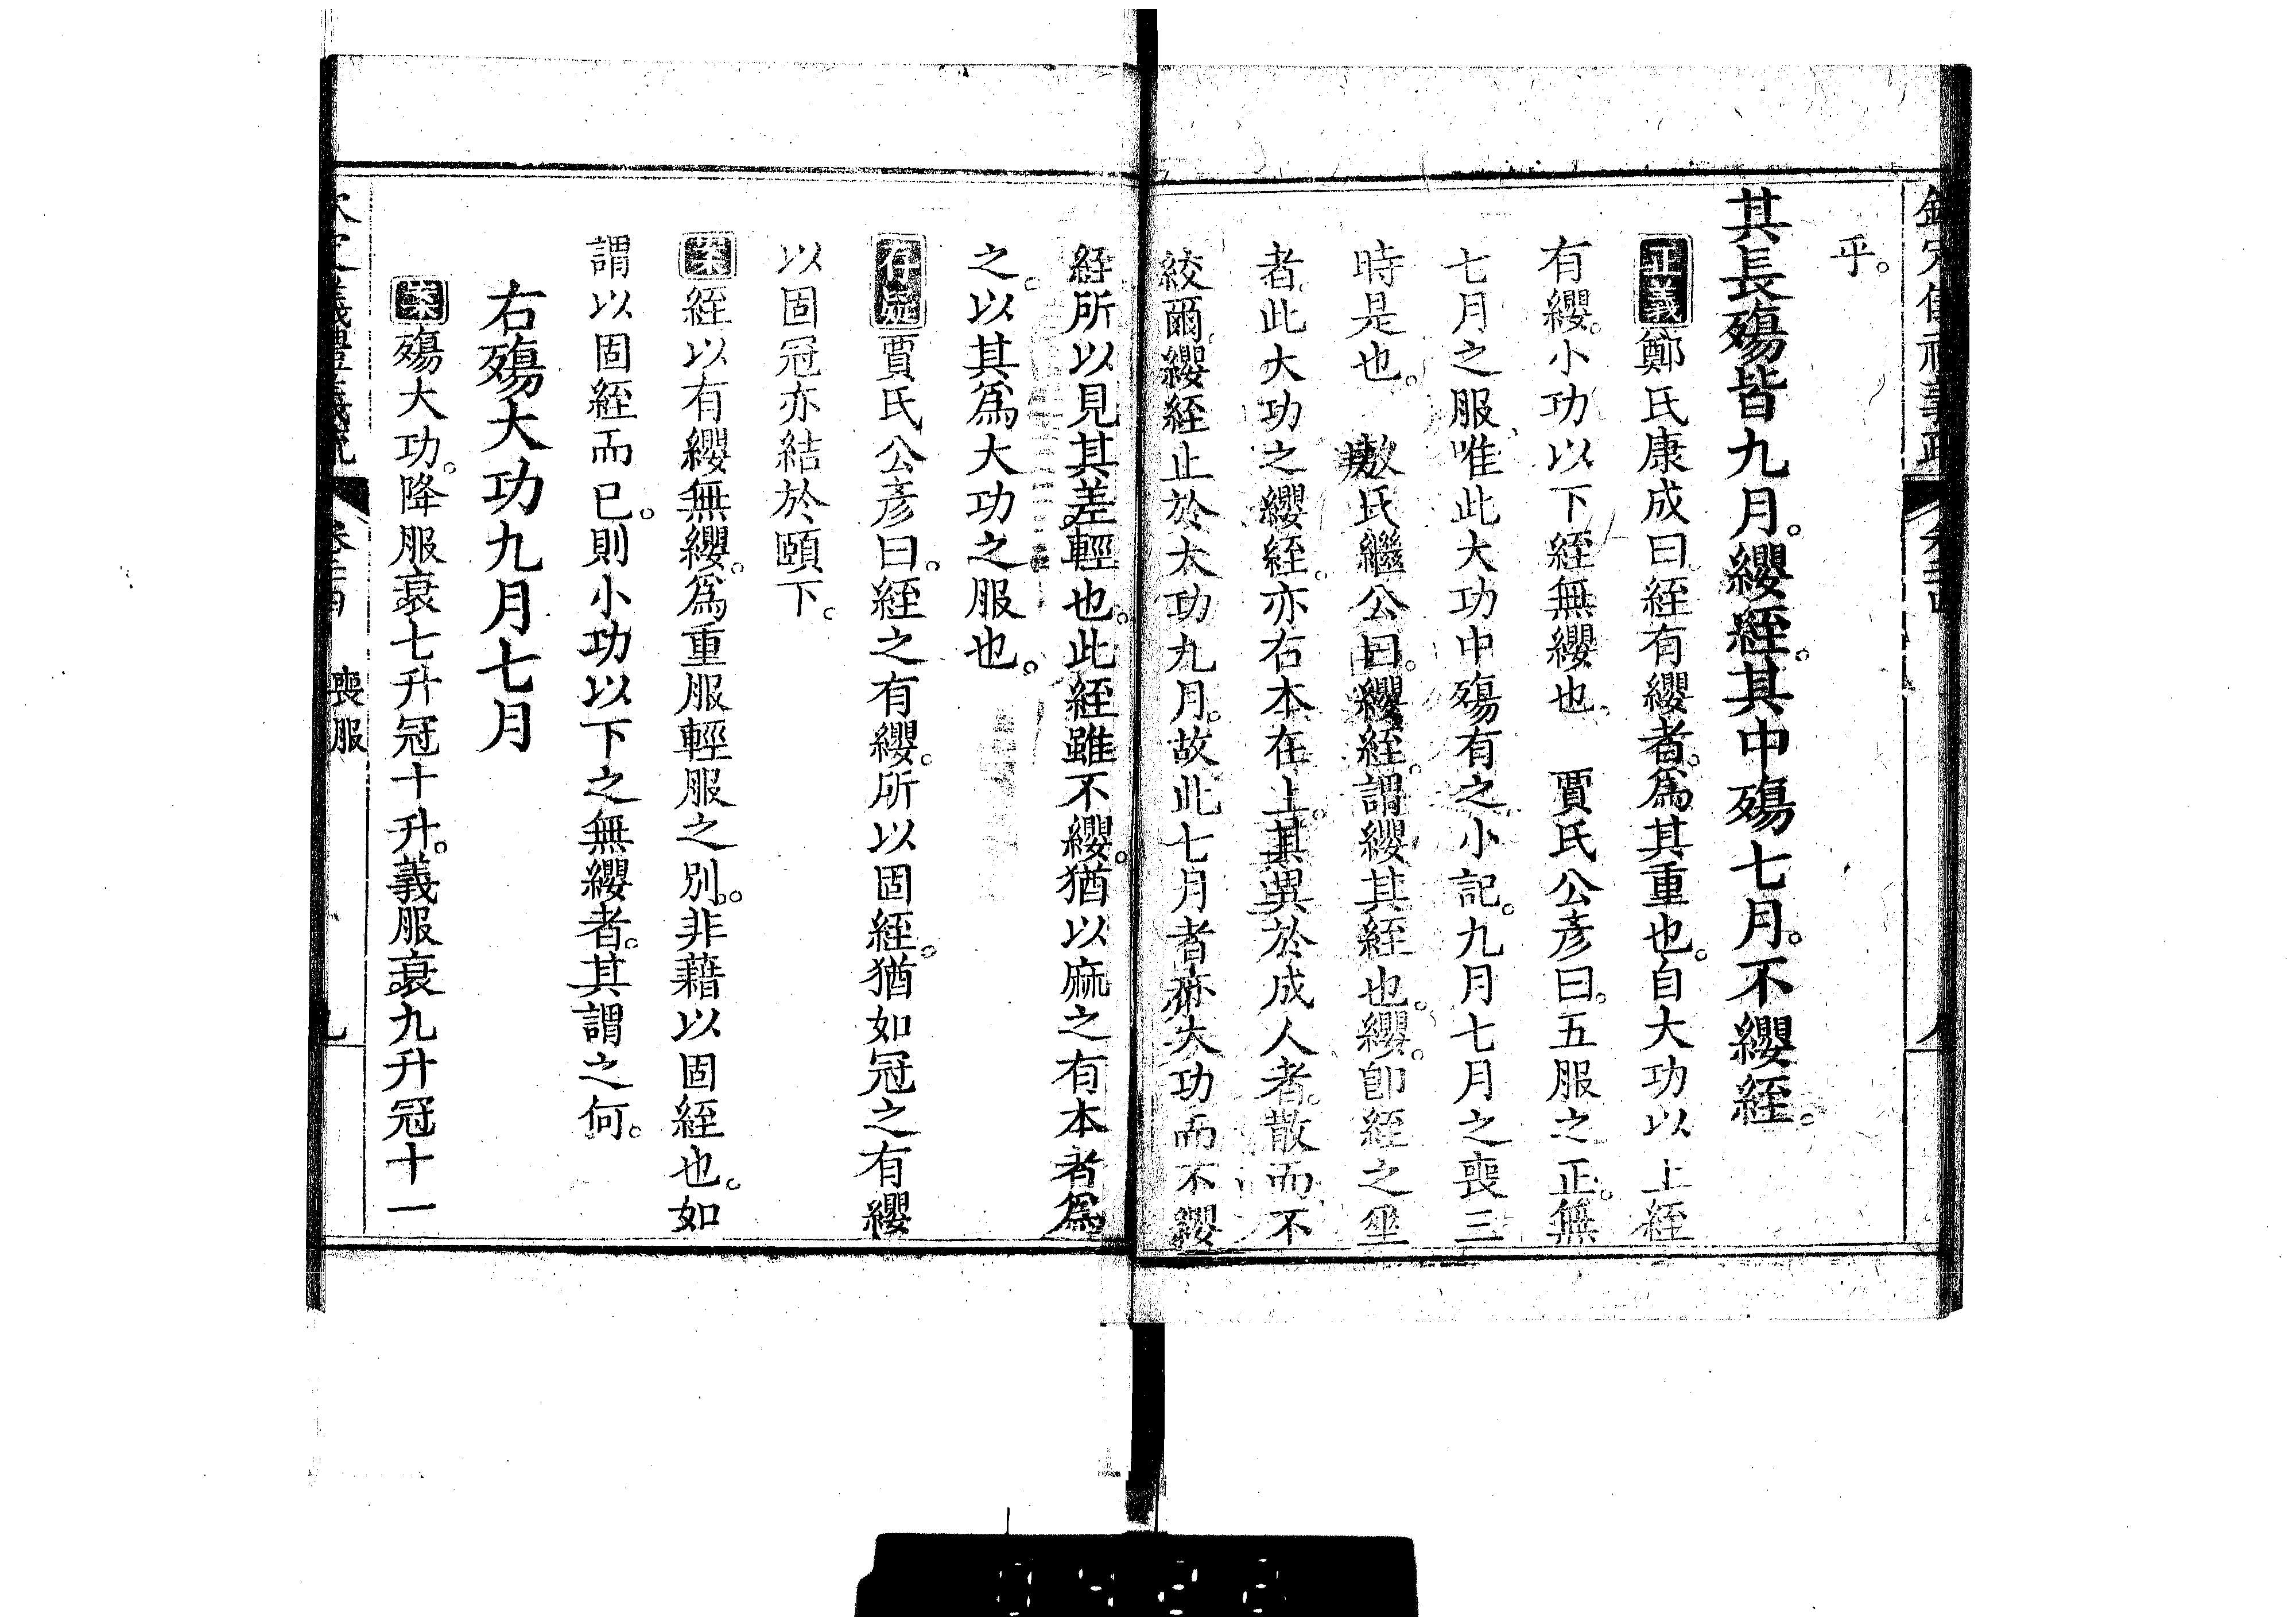 乎。
其長殤皆九月。纓絰。其中殤七月。不纓絰。
正義鄭氏康成曰。絰有纓者。爲其重也。自大功以上絰
有纓。小功以下絰無纓也。賈氏公彥曰。五服之正。無
七月之服。唯此大功中殤有之。小記。九月七月之喪三
時是也。敖氏繼公曰。纓絰。謂纓其絰也。纓。卽絰之𠂹
者。此大功之纓絰。亦右本在上。其異於成人者。散而不
絞爾。纓絰止於大功九月。故此七月者。亦大功而不纓
絰。所以見其差輕也。此絰雖不纓。猶以麻之有本者爲
之。以其爲大功之服也。
存疑賈氏公彥曰。絰之有纓。所以固絰。猶如冠之有纓
以固冠亦結於頤下。
案絰以有纓無纓。爲重服輕服之別。非藉以固絰也。如
謂以固絰而已。則小功以下之無纓者。其謂之何。
右殤大功九月七月
案殤大功。降服衰七升冠十升。義服衰九升冠十一
喪服